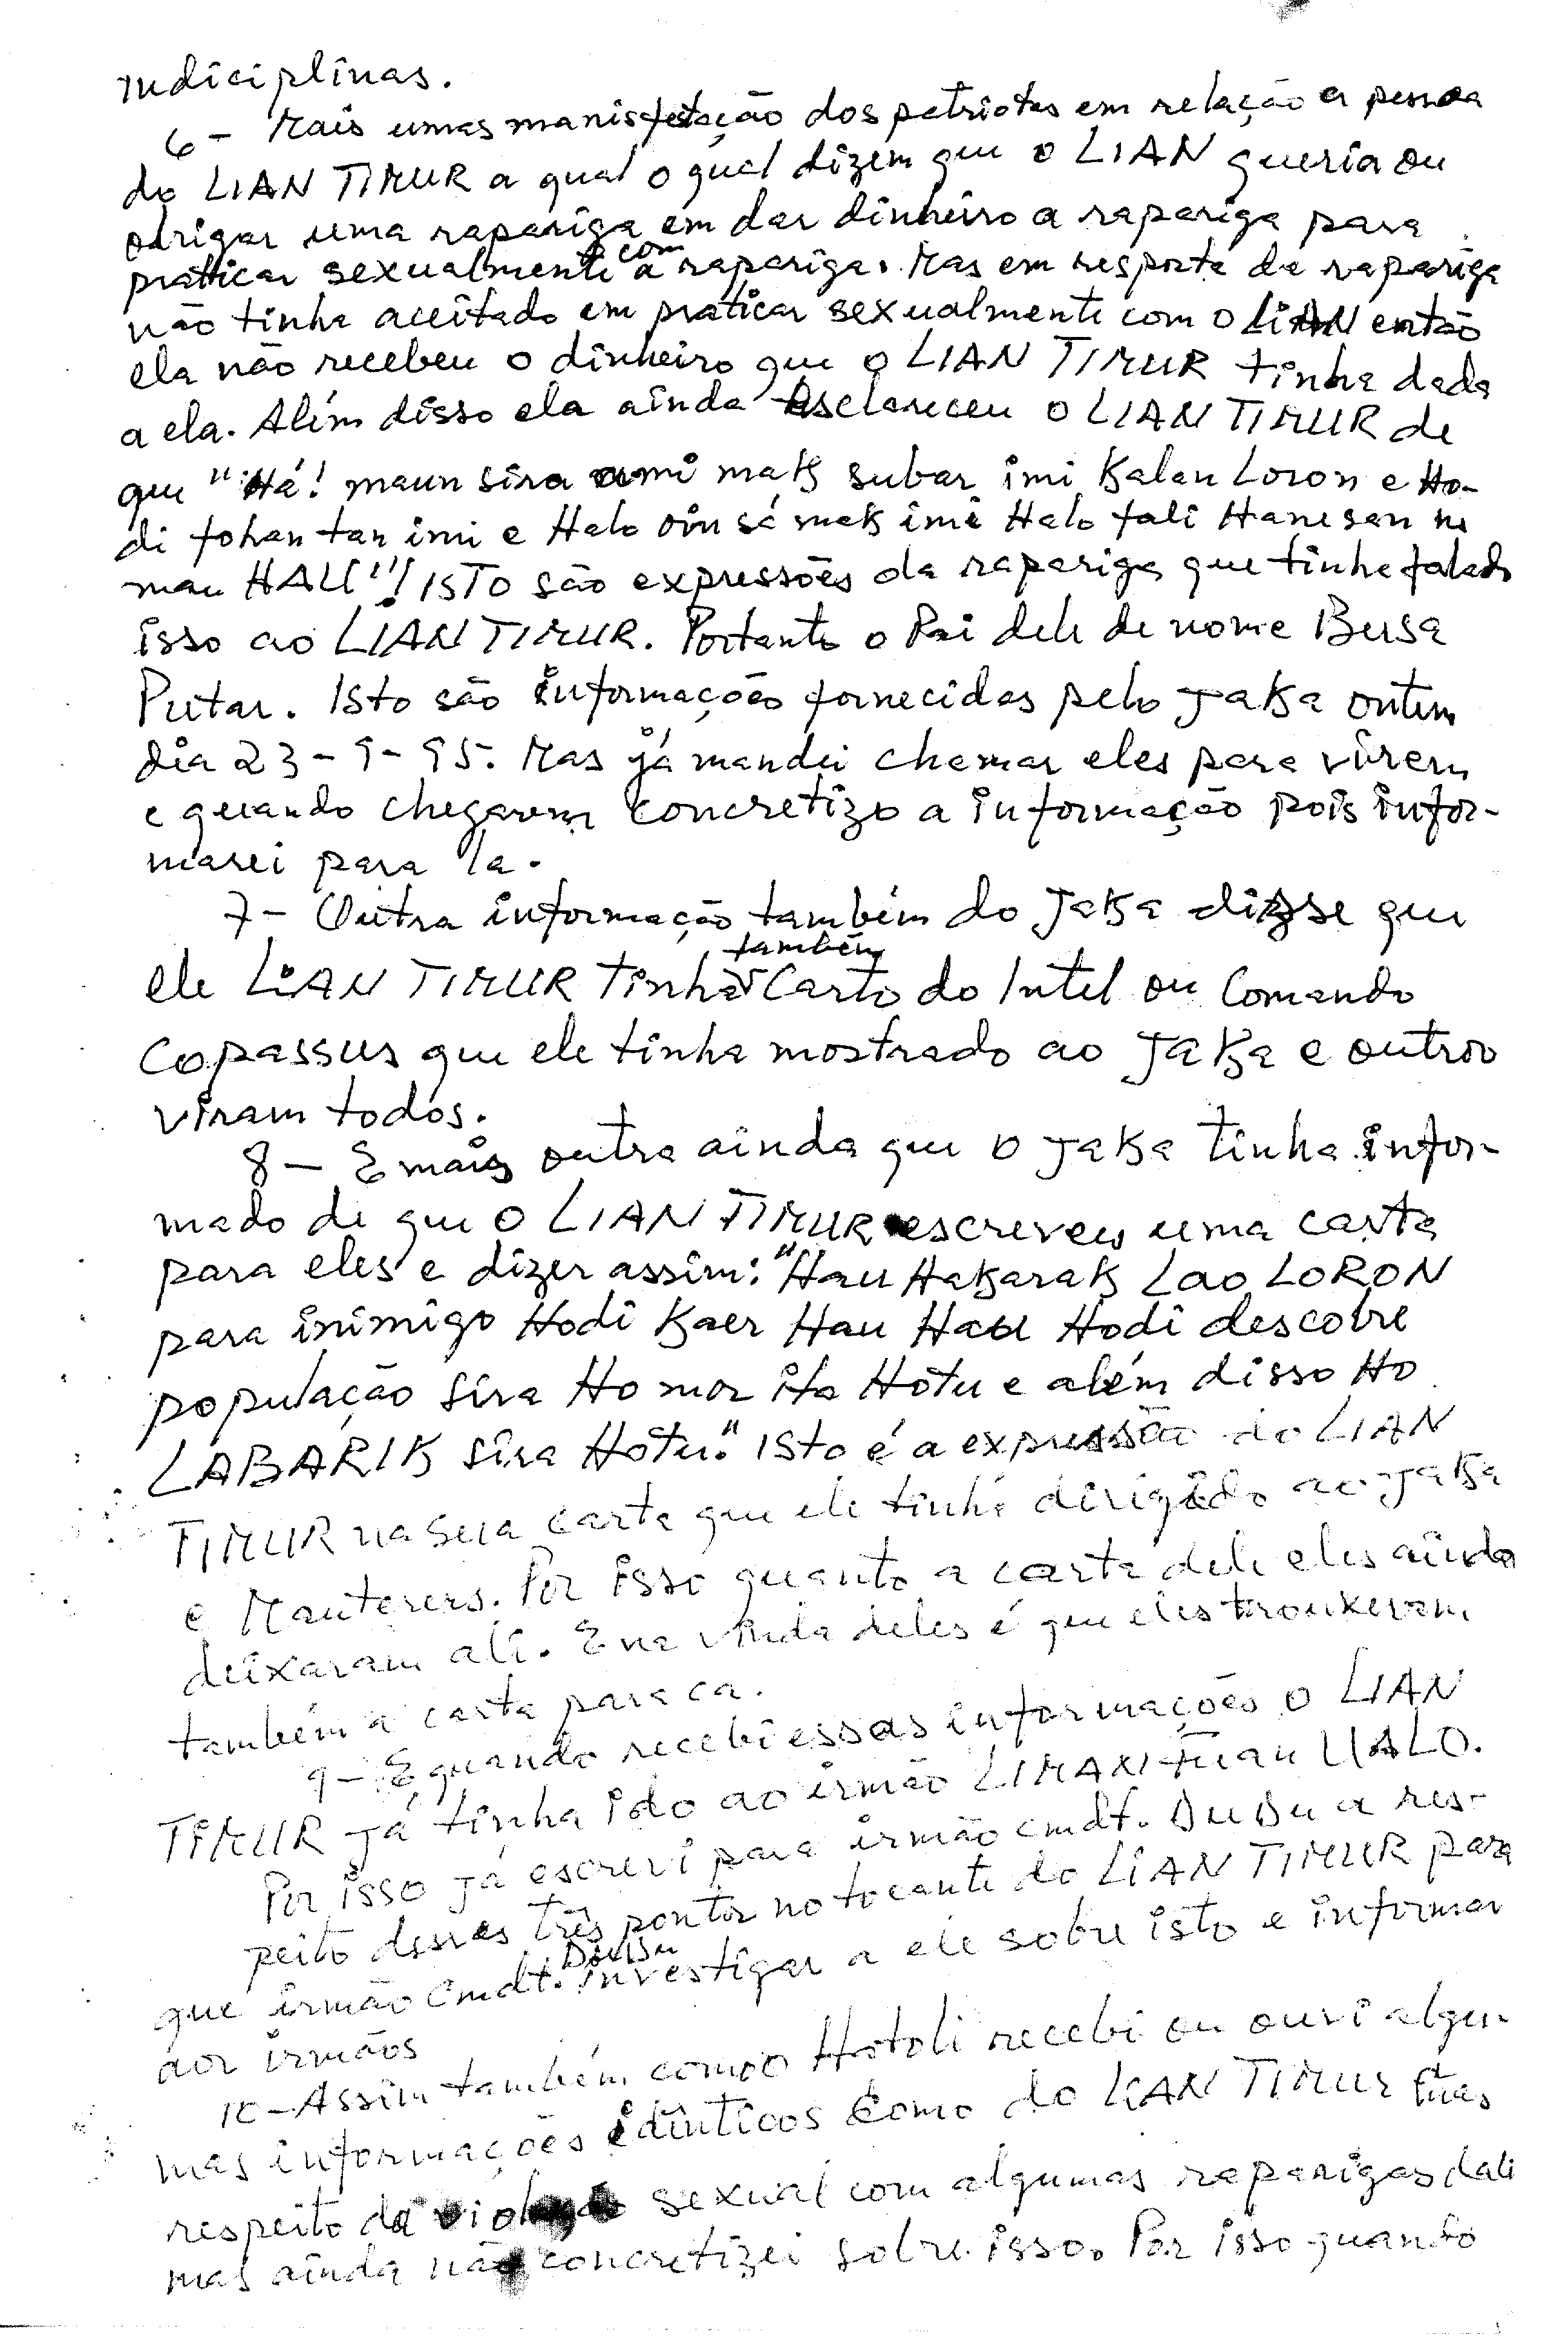 indiciplinas.
6 - Mais umas manisfestação dos patriotas em relação a pessoa
do LIAN TIMUR a qual o qual dizem que o LIAN queria ou
obrigar uma rapariga em dar dinheiro a rapariga para
praticar sexualmente com a rapariga. Mas em resposta da rapariga
não tinha aceitado em praticar sexualmente com o LIAN então
ela não recebeu o dinheiro que o LIAN TIMUR tinha dada
a ela. Além disso ela ainda esclareceu o LIAN TIMUR de
que "Há! maun sira ami mak subar imi kalan loron e Ho-
di fohan tan imi e Halo oin sá mak imi Halo fali Hanesan ne
mau HAU"! ISTO são expressões da rapariga que tinha falado
isso ao LIAN TIMUR. Portanto o Pai dele de nome Busa
Putar. Isto são informações fornecidas pelo Jaka ontem
dia 23-9-95. Mas já mandei chamar eles para virem
e quando chegarem concretizo a informação pois infor-
marei para la.
7 - Outra informação também do Jaka disse que
ele LIAN TIMUR tinha também Carto do Intel ou Comando
Copassus que ele tinha mostrado ao Jaka e outros
viram todos.
8 - E mais outra ainda que o Jaka tinha infor-
mado de que o LIAN TIMUR escreveu uma carta
para eles e dizer assim: "Hau Hakarak Lao LORON
para inimigo Hodi Kaer Hau Hau Hodi descobre
população sira Ho mor ita Hotu e além disso Ho
LABARIK sira Hotu." Isto é a expressão do LIAN
TIMUR na sua carta que ele tinha dirigido ao Jaka
e Mauterers. Por isso quanto a carta dele eles ainda
deixaram ali. E na vinda deles é que eles trouxeram
também a carta para ca.
9 - E quando recebi essas informações o LIAN
TIMUR já tinha ido ao irmão LIMAKITUAN UALO.
Por isso já escrevi para irmão cmdt. DuDu a res-
peito desses três pontos no tocante do LIAN TIMUR para
que irmão Cmdt. DuDu investigar a ele sobre isto e informar
aos irmãos
10 - Assim também como o Hotoli recebi ou ouvi algu-
mas informações idînticos como do LIAN TIMUR a
respeito da violação sexual com algumas raparigas dali
mas ainda não concretizei sobre isso. Por isso quando